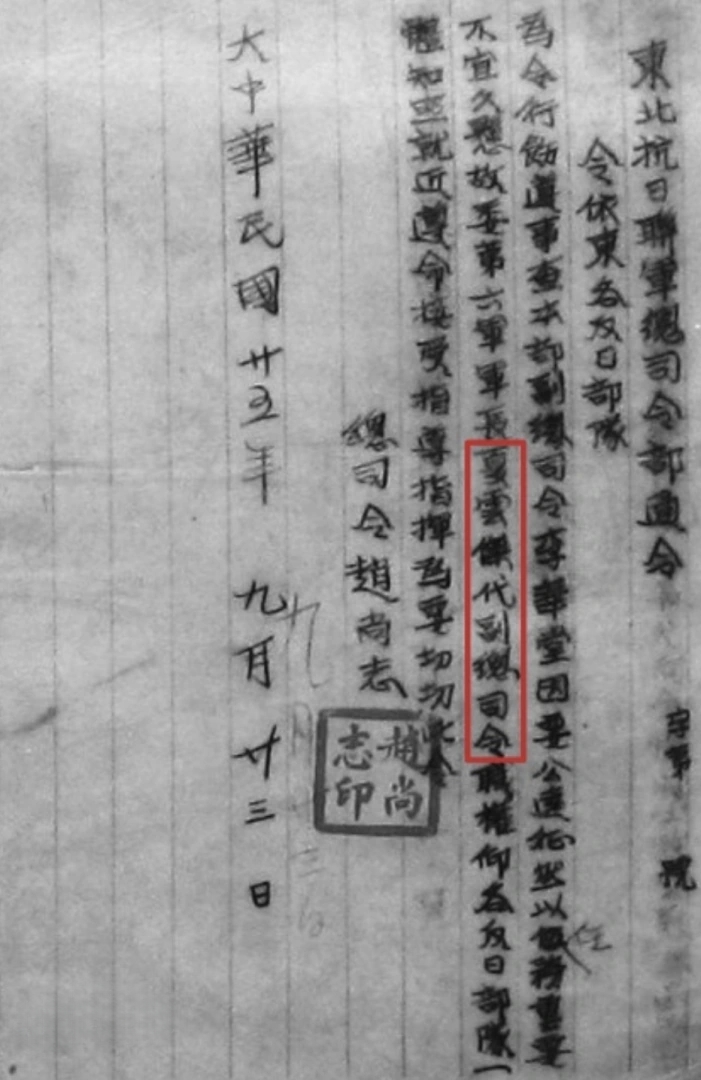 東北抗日聯軍總司令部通令
字第 號
令依東各反日部隊
為令行飭遵事查本部副總司令李華堂因要公遠征然以任務重要
不宜久懸故委第六軍軍長夏雲傑代副總司令職權仰各反日部隊一
體知照就近遵令接受指導指揮為要切切此令
總司令趙尚志
趙尚志印
大中華民國廿五年 九月 廿三日